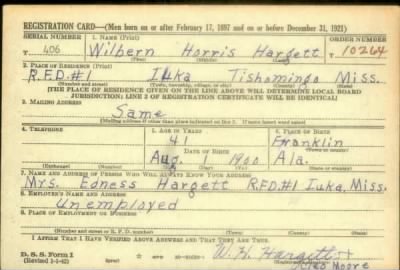 REGISTRATION CARD—(Men born on or after February 17, 1897 and on or before December 31, 1921)
SERIAL NUMBER 1. NAME (Print) ORDER NUMBER
T 406 Wilbern Horris Hargett T 10264
(First) (Middle) (Last)
2. PLACE OF RESIDENCE (Print)
R.F.D.#1 Iuka Tishomingo Miss.
(Number and street) (Town, township, village, or city) (County) (State)
[THE PLACE OF RESIDENCE GIVEN ON THE LINE ABOVE WILL DETERMINE LOCAL BOARD
JURISDICTION; LINE 2 OF REGISTRATION CERTIFICATE WILL BE IDENTICAL]
3. MAILING ADDRESS
Same
[Mailing address if other than place indicated on line 2. If same insert word same]
4. TELEPHONE 5. AGE IN YEARS 6. PLACE OF BIRTH
41 Franklin
DATE OF BIRTH (Town or county)
Aug 1900 Ala.
(Exchange) (Number) (Mo.) (Day) (Yr.) (State or country)
7. NAME AND ADDRESS OF PERSON WHO WILL ALWAYS KNOW YOUR ADDRESS
Mrs. Edness Hargett R.F.D.#1 Iuka, Miss.
8. EMPLOYER'S NAME AND ADDRESS
Unemployed
9. PLACE OF EMPLOYMENT OR BUSINESS
(Number and street or R. F. D. number) (Town) (County) (State)
I AFFIRM THAT I HAVE VERIFIED ABOVE ANSWERS AND THAT THEY ARE TRUE.
D. S. S. Form 1 W. H. Hargett
(over) Moore